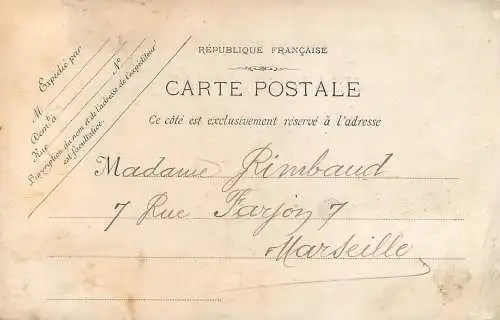 RÉPUBLIQUE FRANÇAISE
CARTE POSTALE
Ce côté est exclusivement réservé à l'adresse
Expédié par
M
Demt à
Rue Nº
L'inscription du nom et de l'adresse de l'expéditeur
est facultative.
Madame Rimbaud
7 Rue Farjon 7
Marseille